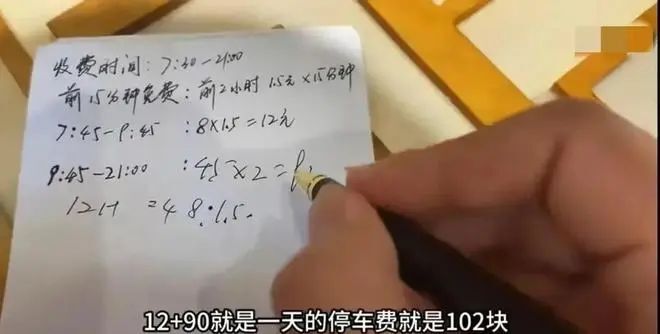 收费时间:7:30-21:00
前15分钟免费:前2小时 1.5元×15分钟
7:45-9:45 :8×1.5=12元
9:45-21:00 :45×2=9
12H =48·1.5.
12+90就是一天的停车费就是102块